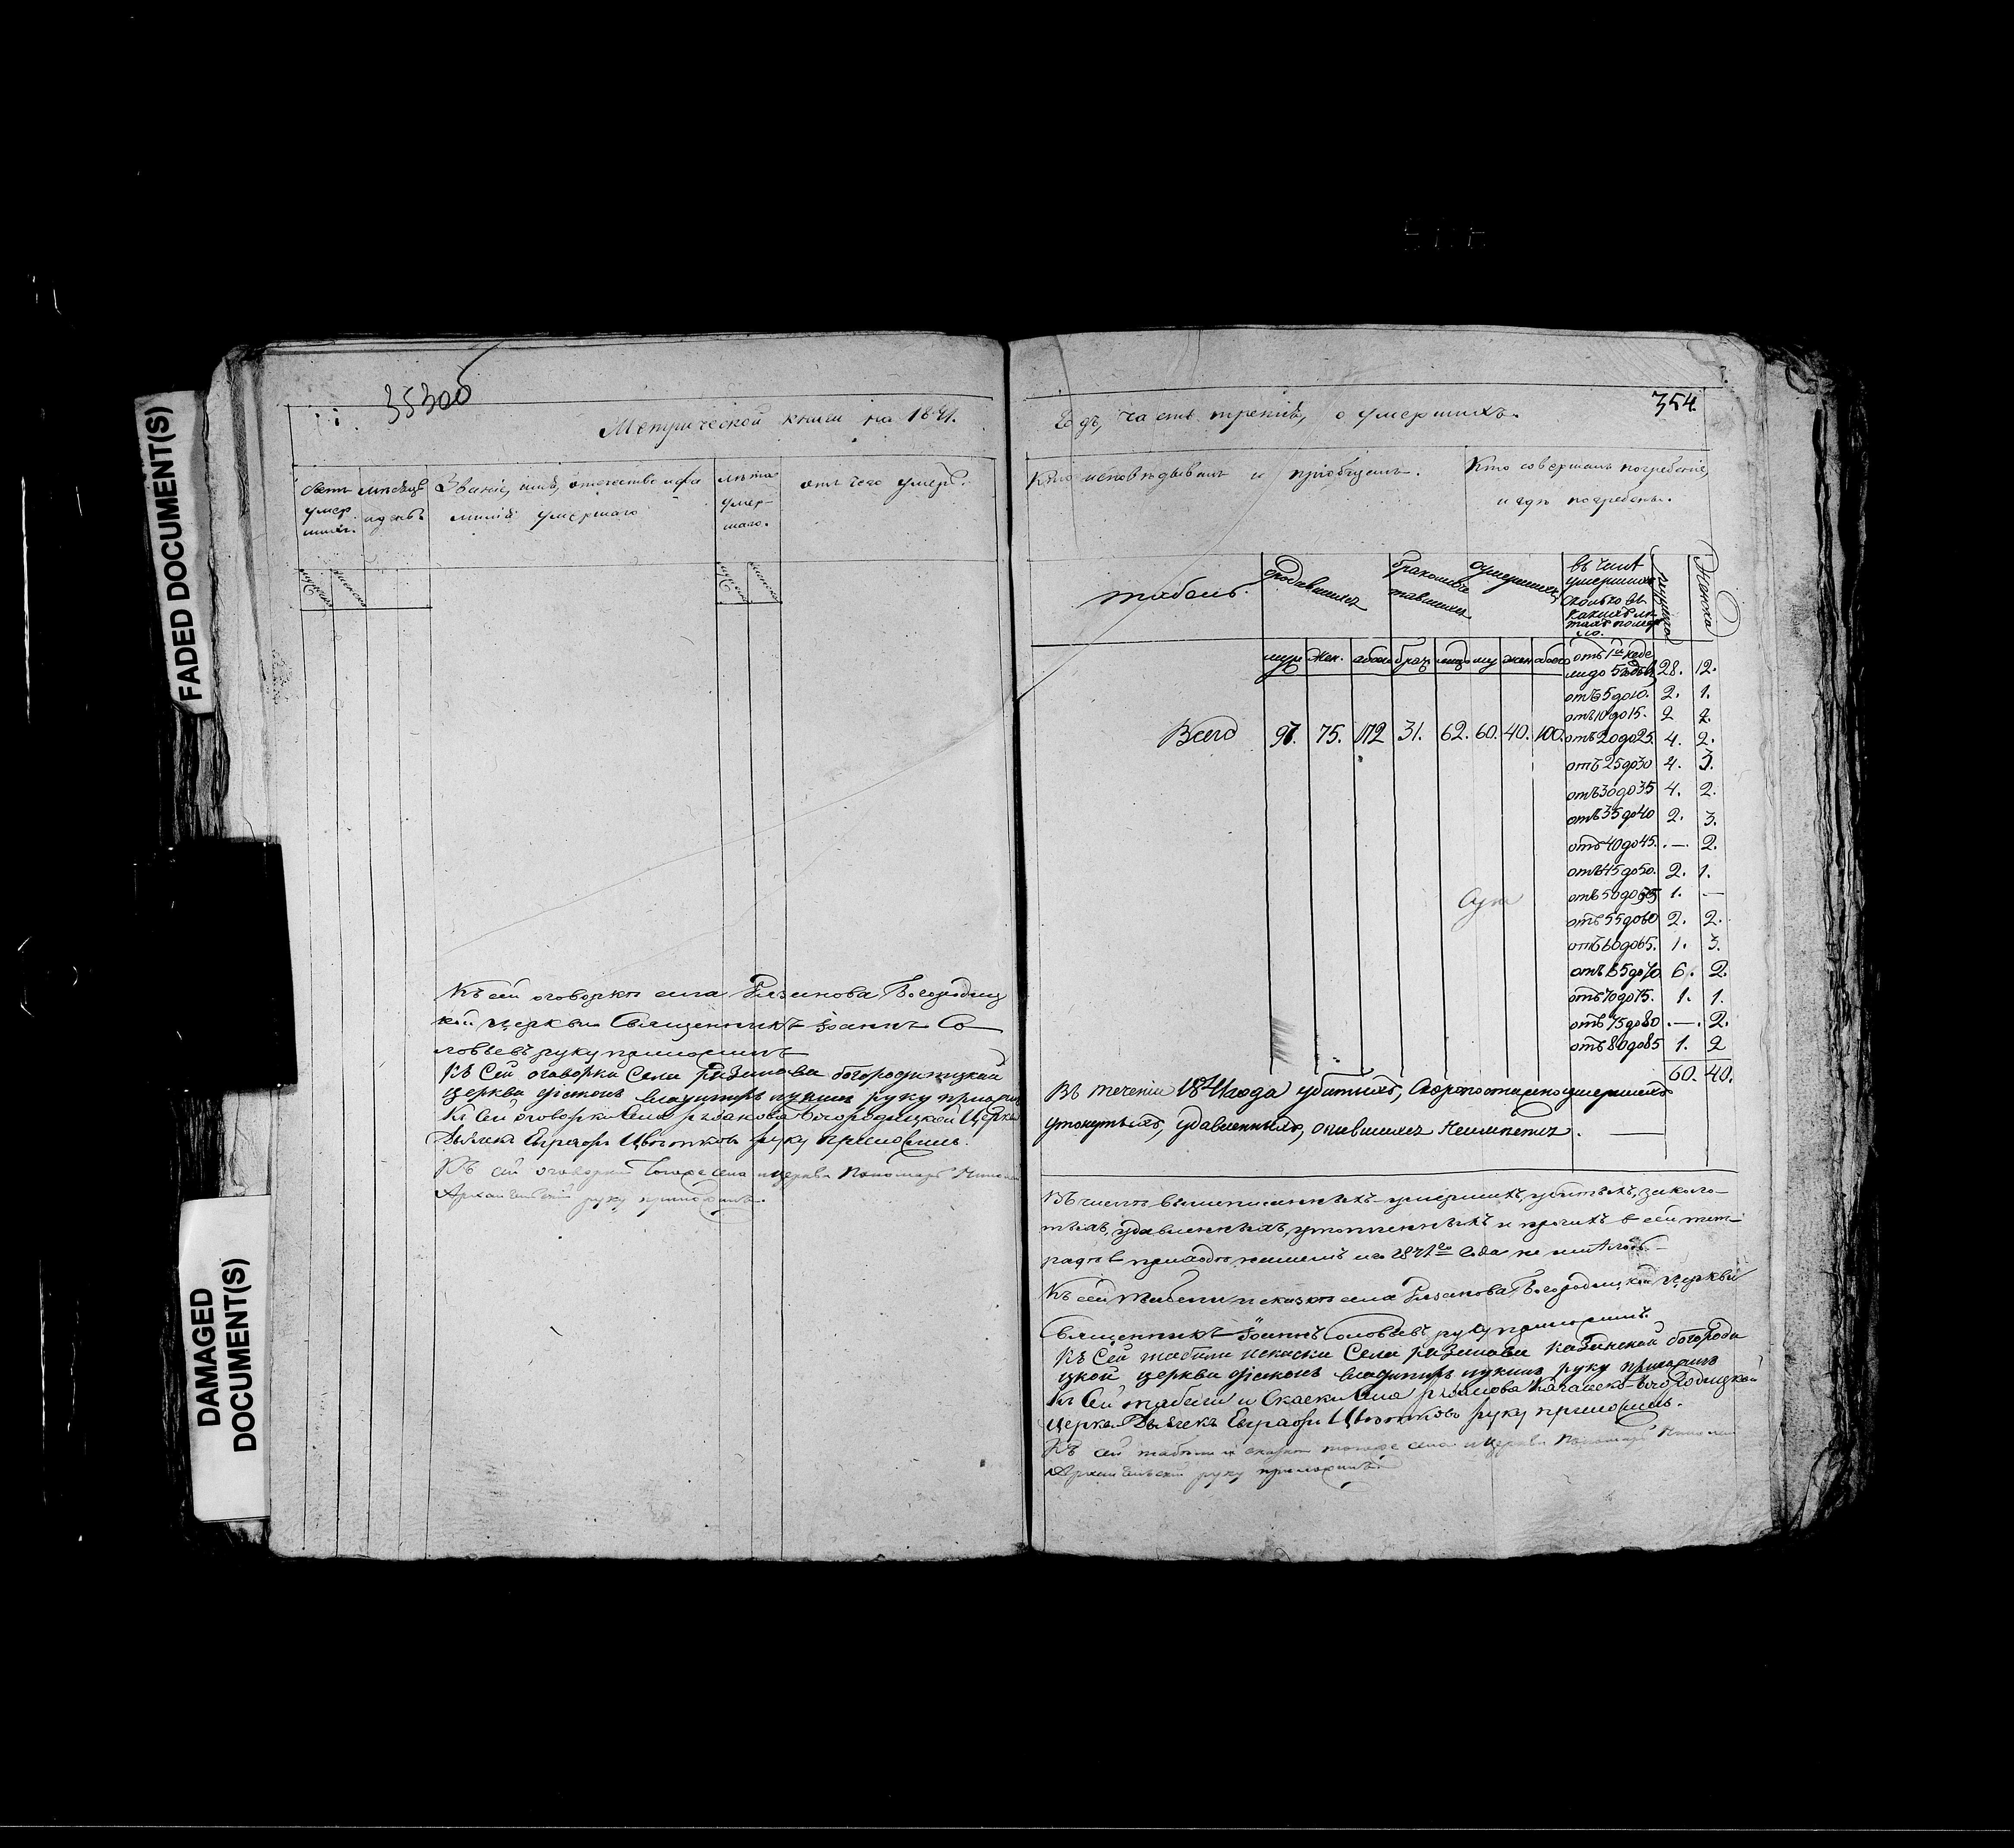 FADED DOCUMENT(S)
DAMAGED
DOCUMENT(S)
353об
Метрической книги на 1841.
Счетъ умер шихъ.
мѣсяцъ и день
Званіе, имя, отечество и фа
милія умершаго
лѣта умер-
шаго.
отъ чего умеръ.
Къ сей оговоркѣ села Рязанова, Богородиц
кой церкви Священникъ Іоаннъ Со
ловьевъ руку приложилъ
Къ Сей оговорки Села Рязанова богородицкой
церкви руку приложилъ
Къ Сей оговорки Села Рязанова Богородицкой Церкви
Дьячекъ Евграфъ Цвѣтковъ руку приложилъ.
Къ сей оговорки тогоже села и церкви Пономарь
Архангельскій руку приложилъ.
354
Годъ, часть третія, о умершихъ.
Кто исповѣдывалъ и пріобщалъ.
Кто совершалъ погребеніе,
и гдѣ погребены.
табель.
родившихся
бракосоче
тавшихся
умершихъ
въ числѣ
умершихъ
сколько въ
какихъ лѣ
тахъ помер
ло.
мужеска
Женска
муж жен. обоего брак лицъ му жен обоего
отъ 1й неде
ли до 5 годовъ 28. 12.
отъ 5 до 10. 2. 1.
отъ 10 до 15. 2 2.
Всего 97. 75. 172 31. 62. 60. 40. 100.
отъ 20 до 25. 4. 2.
отъ 25 до 30 4. 3.
отъ 30 до 35 4. 2.
отъ 35 до 40 2. 3.
отъ 40 до 45. — 2.
отъ 45 до 50. 2. 1.
отъ 50 до 55 1. —
отъ 55 до 60 2. 2.
отъ 60 до 65. 1. 3.
отъ 65 до 70 6. 2.
отъ 70 до 75. 1. 1.
отъ 75 до 80 — 2.
отъ 80 до 85 1. 2
60. 40.
Въ теченіи 1841 года убитыхъ, скоропостижно умершихъ
утонутыхъ, удавленныхъ, опившихся неимѣется.
Въ числѣ вышеписанныхъ умершихъ, убитыхъ, заколо-
тыхъ, удавленныхъ, утопленныхъ и прочихъ в сей тет-
радѣ в приходѣ нашемъ изъ 1841го Года не имѣлось
Къ сей табели и сказкѣ села Рязанова, Богородицкой церкви
Священникъ Іоаннъ Соловьевъ руку приложилъ.
Къ Сей табели и скаски Села Рязанова Казанской богороди
цкой церкви руку приложилъ
Къ Сей табели и Скаски Села Рязанова Казанско-Богородицкой
Церкви Дьячекъ Евграфъ Цвѣтковъ руку приложилъ.
Къ сей табели и сказки тогоже села и церкви Пономарь
Архангельскій руку приложилъ